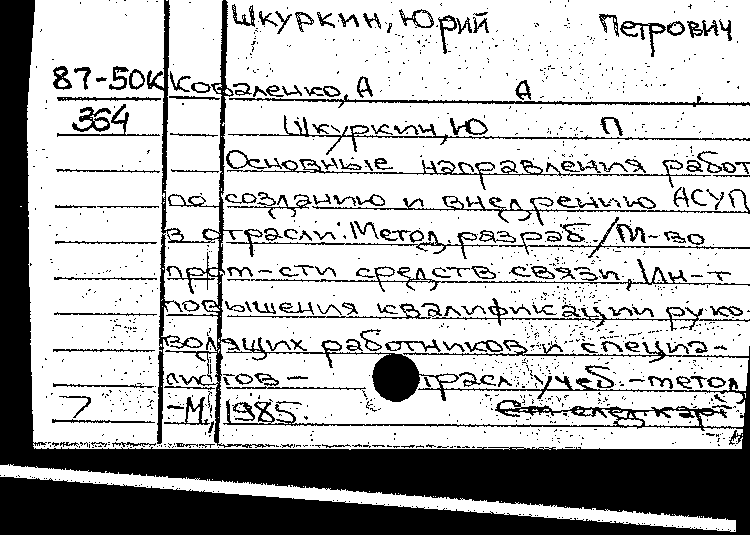 Шкуркин, Юрий Петрович
87-50К Коваленко, А А ,
364 Шкуркин, Ю П
Основные направления работ
по созданию и внедрению АСУП
в отрасли: Метод. разраб / М-во
пром-сти средств связи, Ин-т
повышения квалификации руко-
водящих работников и специа-
листов – отрасл. учеб.-метод
7 -М., 1985. См. след. карт.